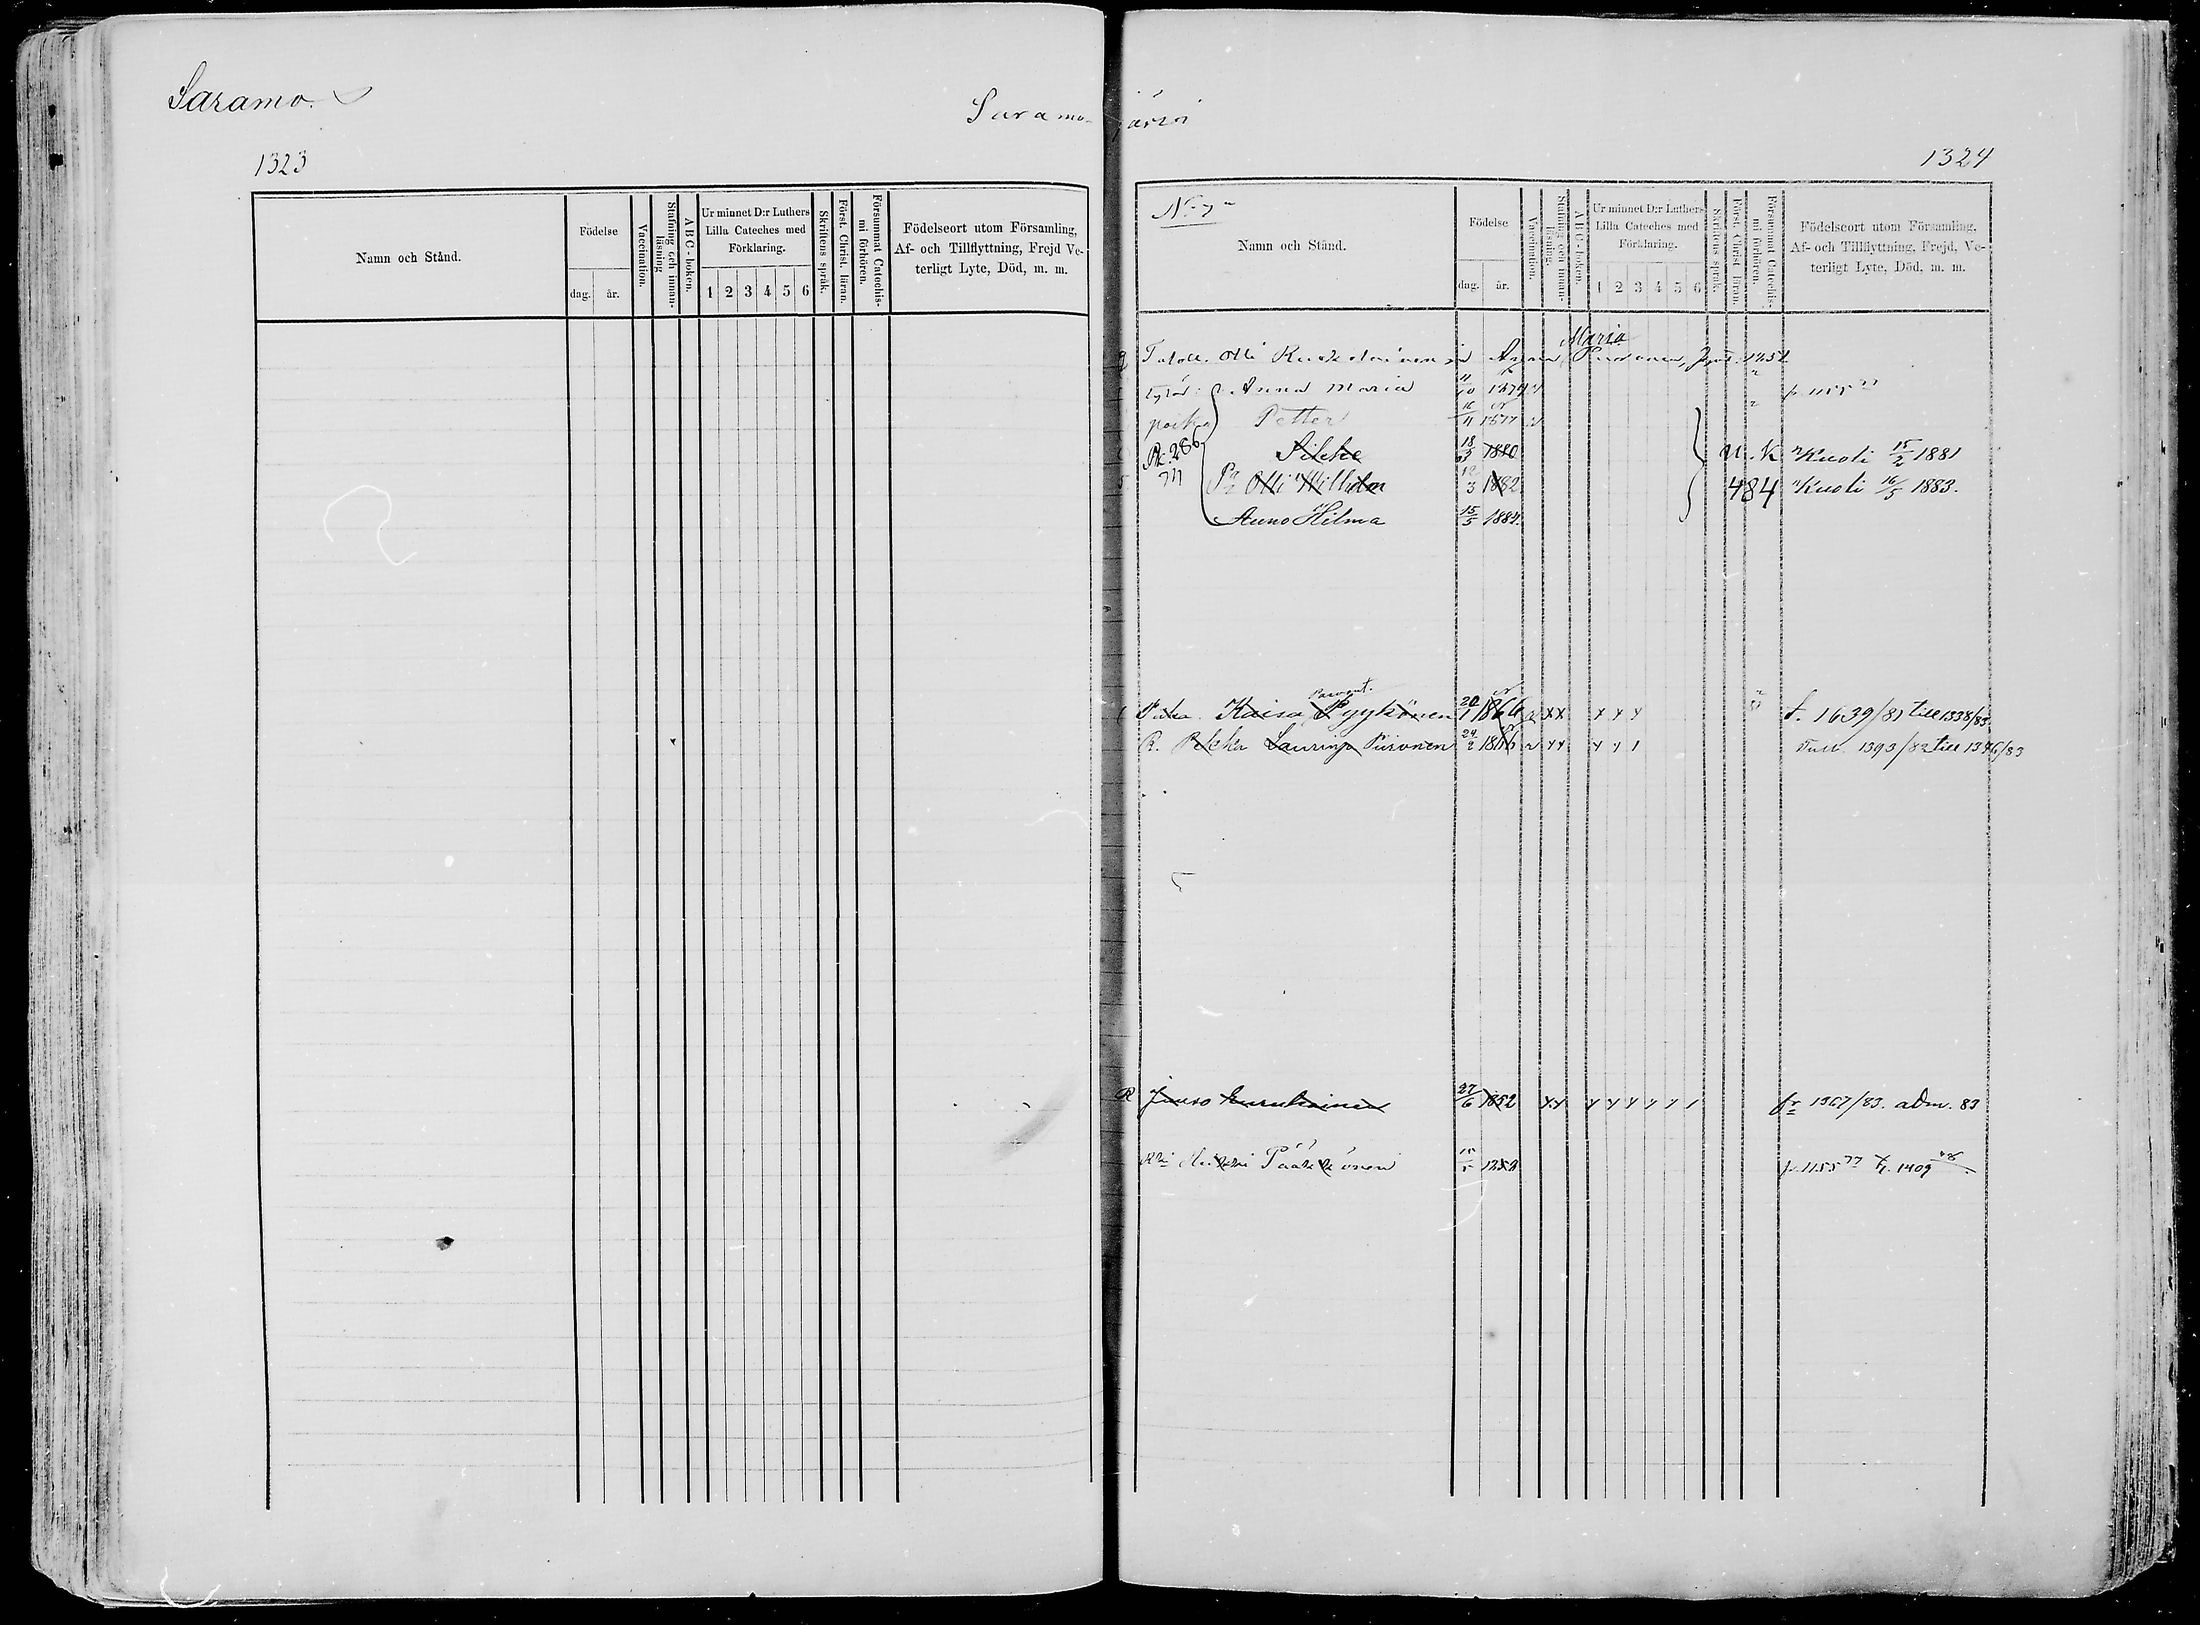 Saramo.
Saramo-
1323
Namn och Stånd.
Födelse
dag.
år.
Vaccination.
Stafning och innan-
läsning
A B C - boken.
Ur minnet D:r Luthers
Lilla Cateches med
Förklaring.
1 2 3 4 5 6
Skriftens språk.
Först. Christ. läran.
Försummat Catechis-
mi förhören.
Födelseort utom Församling,
Af- och Tillflyttning, Frejd Ve-
terligt Lyte, Död, m. m.
järvi
1324
N:o 7
Namn och Stånd.
Födelse
dag.
år.
Vaccination.
Stafning och innan-
läsning.
A B C - boken.
Ur minnet D:r Luthers
Lilla Cateches med
Förklaring.
1 2 3 4 5 6
Skriftens språk.
Först. Christ. läran.
Försummat Catechis-
mi förhören.
Födelseort utom Församling,
Af- och Tillflyttning, Frejd, Ve-
terligt Lyte, Död, m. m.
Maria
Otti
tytär: Anna Maria 11/10 1874 v p. 1155 77
poika Petter 16/11 1877 v
286 18/3 1880 U. K Kuoli 15/2 1881
Otti Wilhelm 12/3 1882 484 Kuoli 16/5 1883.
Auno Hilma 15/5 1884.
Kaisa Pyykönen 20/1 1866 v xx x y y f. 1639/81 till 1338/83.
R. Pekka Laurinp Piironen 24/2 1866 v yy y y 1 1393/82 till 1346/83
R Juuso 27/6 1852 yy y y y y y 1 fr 1367/83. adm. 83
Heikki Pääkkönen p. 1155 77 t. 1409 78